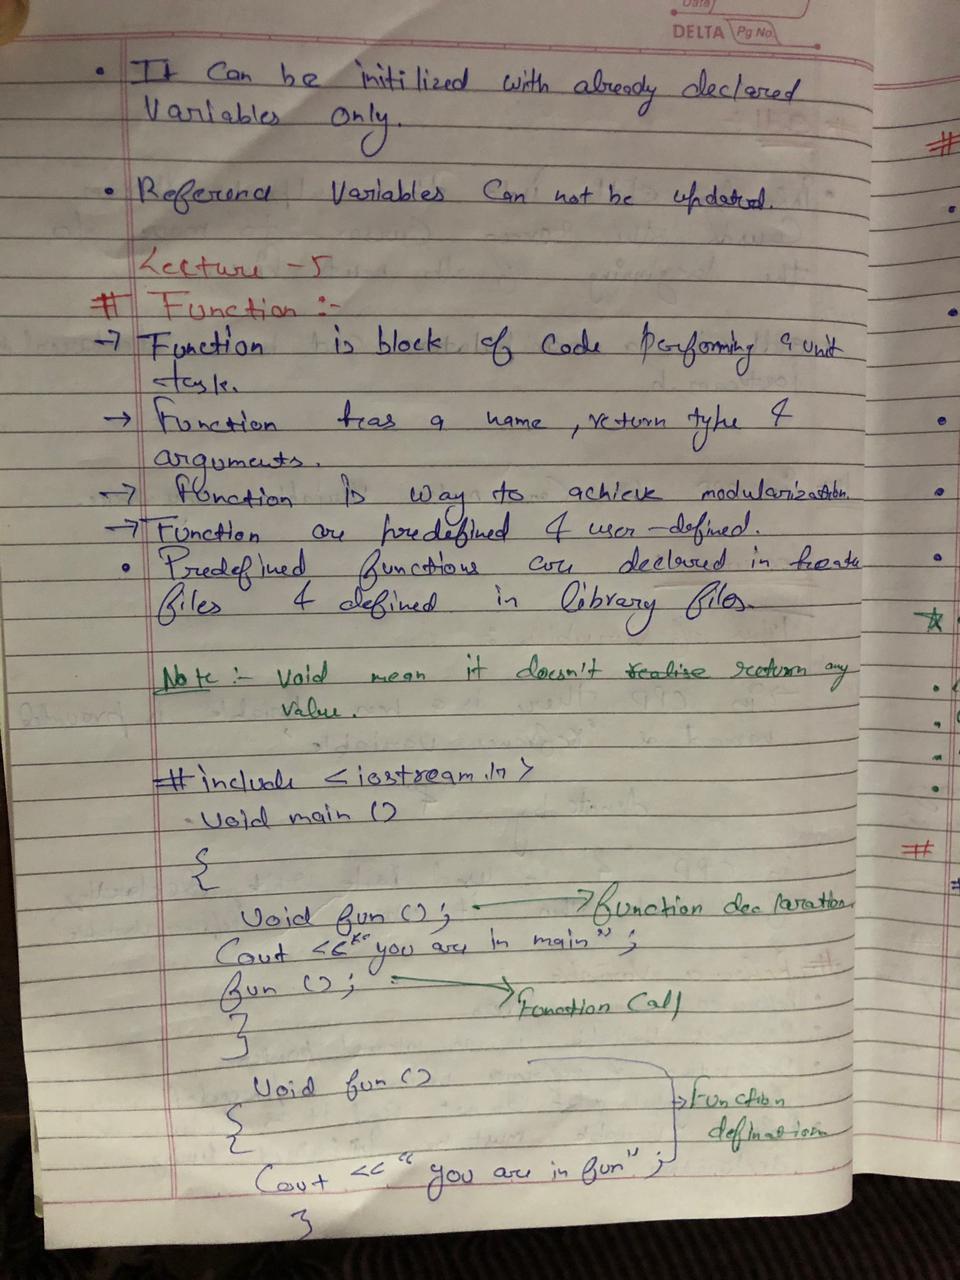 Date
DELTA Pg No.
• It Can be initilized with already declared
Variables only.
• Reference Variables Can not be updated.
Lecture - 5
# Function :-
→ Function is block of Code performing a unit
task.
→ Function has a name, return type &
arguments.
→ Function is way to achieve modularization.
→ Function are predefined & user-defined.
• Predefined functions are declared in
files & defined in library files.
Note :- Void mean it doesn't realise return any
Value.
# include <iostream.h>
Void main ()
{
Void fun (); → function declaration
Cout << "you are in main";
fun (); → Function Call
}
Void fun ()
{ → Function
defination
Cout << "you are in fun";
}